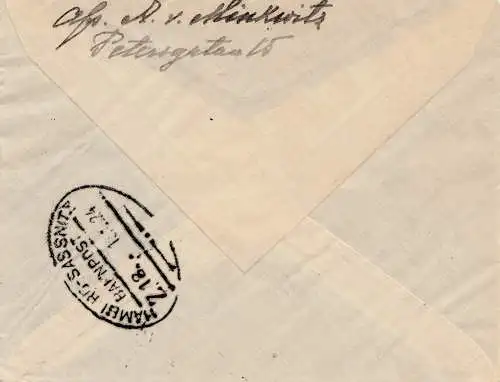 Afs. A. v. Minkwitz
Petersgatan 15
HAMBURG-SASSNITZ
BAHNPOST
Z.18
24